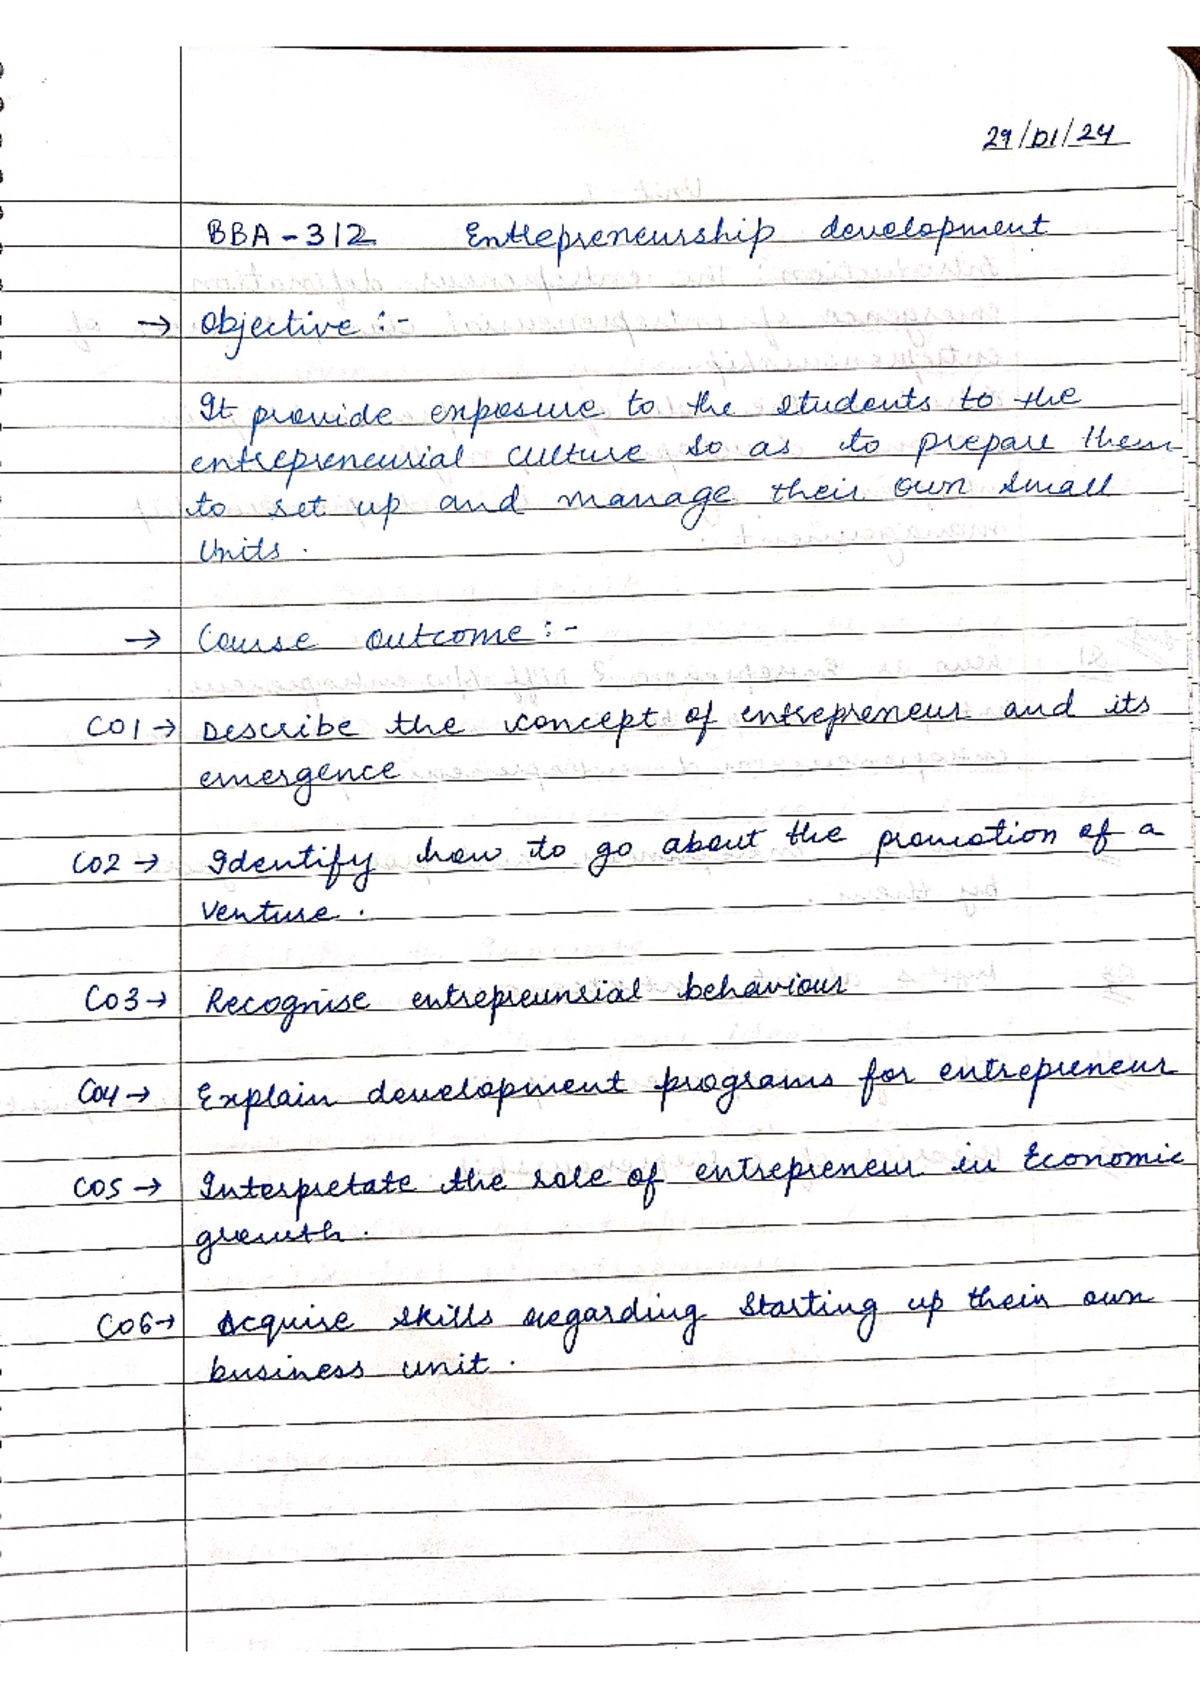 29/01/24
BBA - 312 Entrepreneurship development
→ Objective :-
It provide exposure to the students to the
entrepreneurial culture so as to prepare them
to set up and manage their own small
Units.
→ Course outcome :-
CO1 → Describe the concept of entrepreneur and its
emergence
CO2 → Identify how to go about the promotion of a
venture.
CO3 → Recognise entrepreunrial behaviour
CO4 → Explain development programs for entrepreneur
CO5 → Interpretate the role of entrepreneur in Economic
growth.
CO6 → Acquire skills regarding starting up their own
business unit.